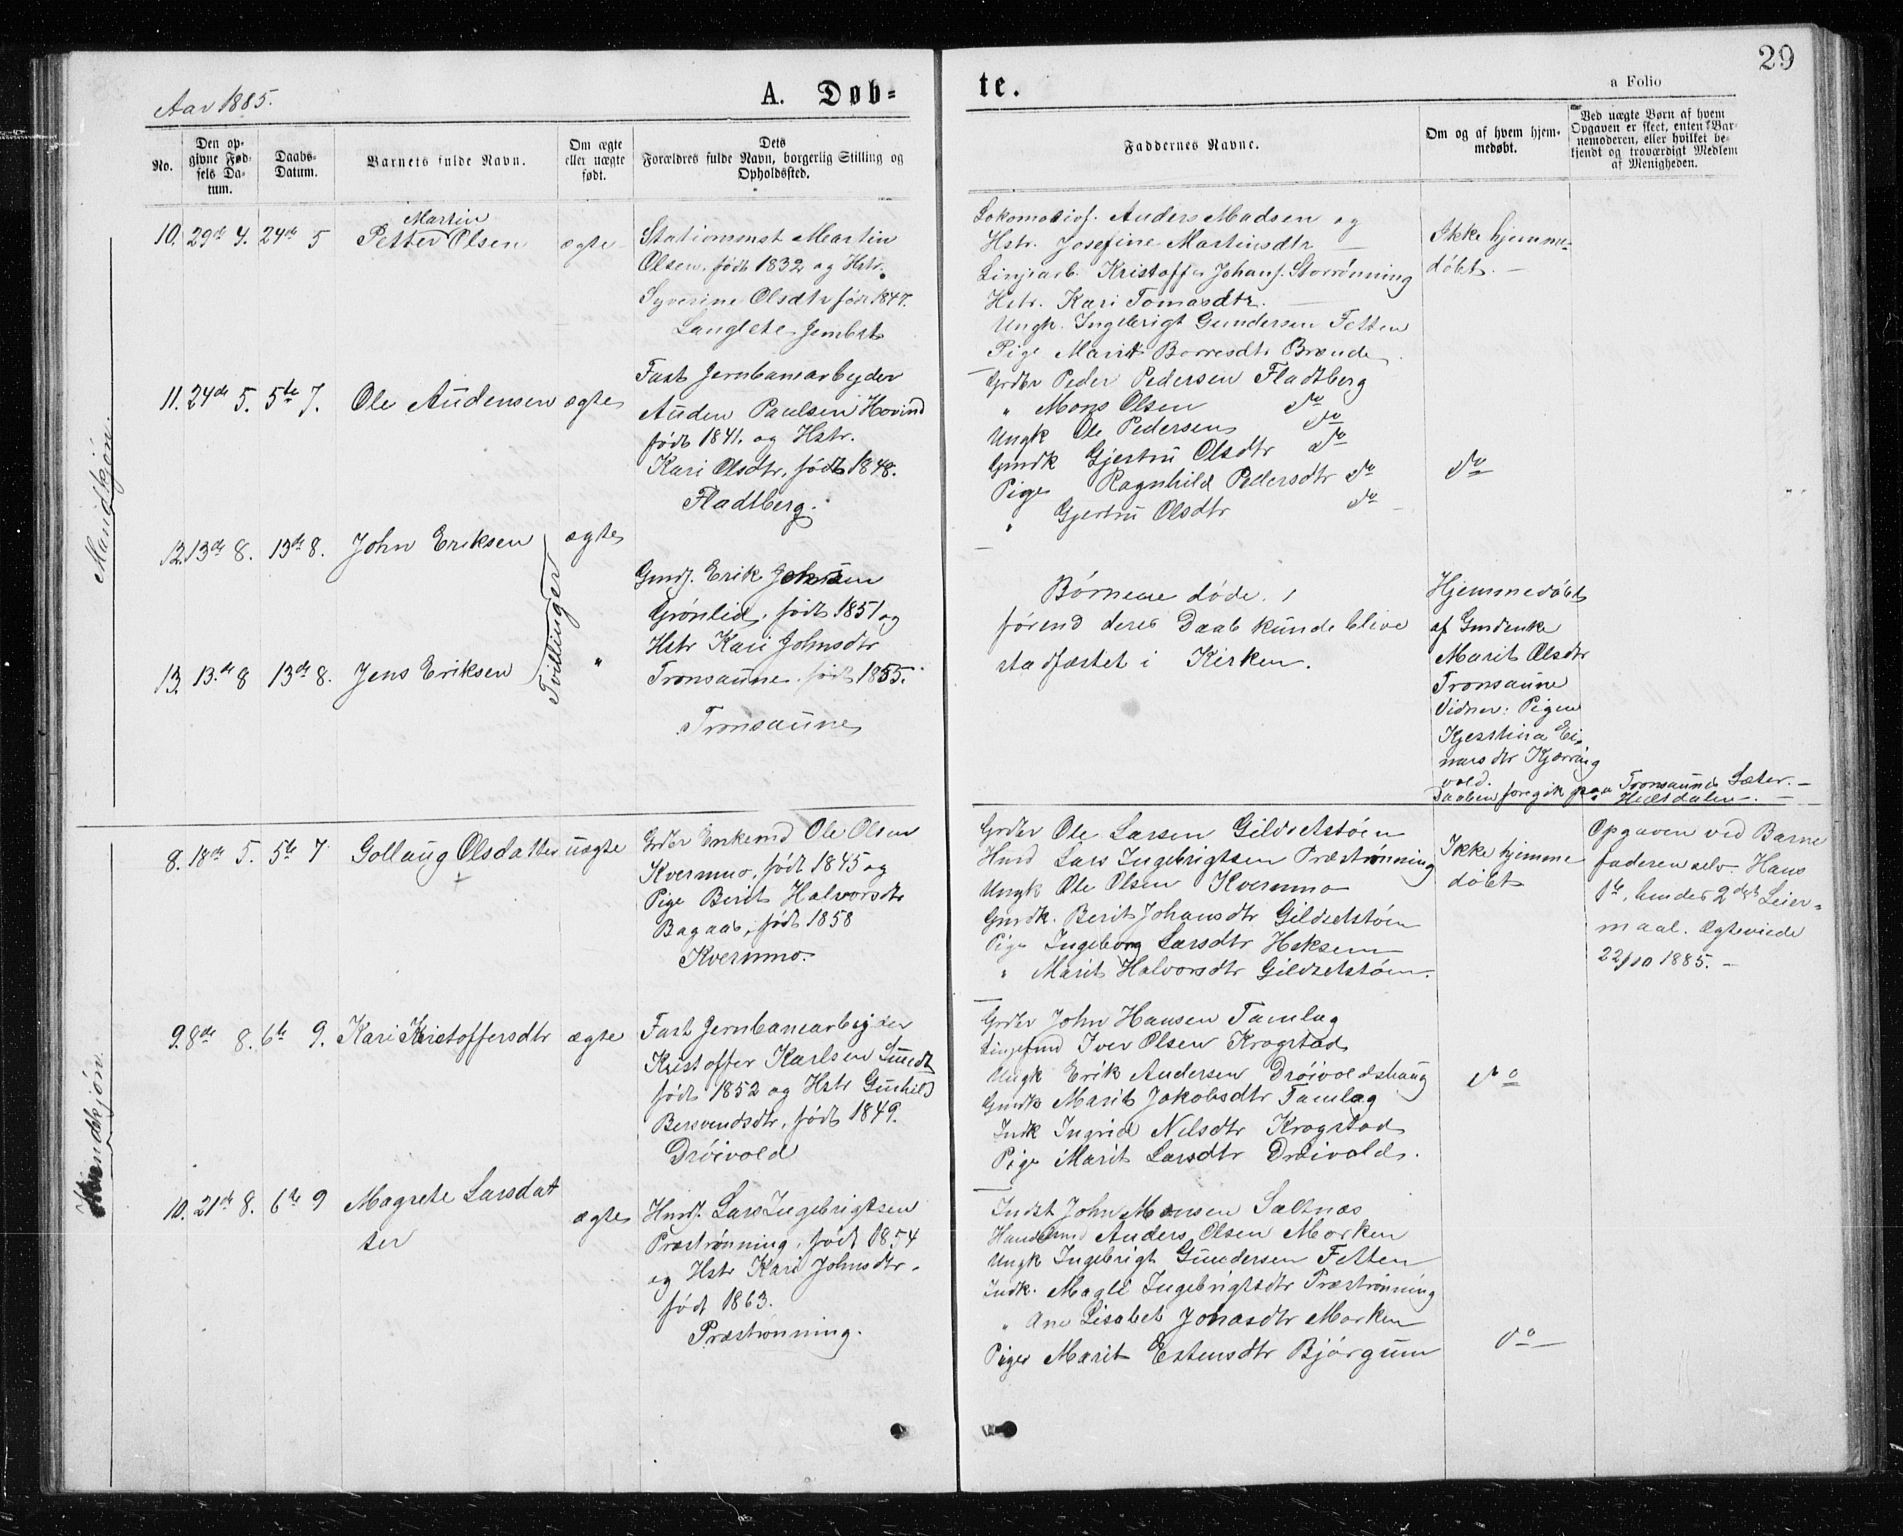 29
Aar 1885.
A. Døb=
te.
a Folio
No.
Den op-
givne Fød-
sels Da-
tum.
Daabs-
Datum.
Barnets fulde Navn.
Om ægte
eller uægte
født.
Dets
Forældres fulde Navn, borgerlig Stilling og
Opholdssted.
Faddernes Navne.
Om og af hvem hjem-
medøbt.
Ved uægte Børn af hvem
Opgaven er skeet, enten Bar-
nemoderen, eller hvilket be-
kjendt og troværdigt Medlem
af Menigheden.
Mandkjøn.
10. 29de 4. 24de 5
Martin
Petter Olsen
ægte
Stationsmst Martin
Olsen, født 1832 og Hstr.
Syverine Olsdtr født 1847.
Langlete Jernbst
Lokomotivf. Anders Madsen og
Hstr. Josefine Martinsdtr
Linjearb. Kristoffer Johans. Storrønning
Hstr. Kari Tomasdtr.
Ungk. Ingebrigt Gundersen Fetten
Pige Marit Borresdtr Brende
Ikke hjemme-
døbt.
11. 24de 5. 5te 7.
Ole Audensen
ægte
Fast Jernbanearbejder
Auden Paulsen Hovind
født 1841. og Hstr.
Kari Olsdtr, født 1848.
Fladtberg.
Grdbr Peder Pedersen Fladtberg
" Mons Olsen do
Ungk Ole Pedersen do
Gmdk Gjertru Olsdtr do
Pige Ragnhild Pedersdtr do
" Gjertru Olsdtr do
do
12. 13de 8. 13de 8.
John Eriksen
ægte
Tvillinger
13. 13de 8 13de 8.
Jens Eriksen
"
Gmdf. Erik Johnsen
Grønlid, født 1851 og
Hstr Kari Johnsdtr
Tronsaune, født 1855.
Tronsaune
Børnene døde
førend deres Daab kunde blive
stadfæstet i Kirken.
Hjemmedøbt
af Gmdenke
Marit Olsdtr
Tronsaune
Vidner: Pigen
Kjerstina Ei-
narsdtr Kjærring
vold.
Daaben foregik paa Tronsaunes Sæter.
Hulsdalen.
Kvindekjøn.
8. 18de 5. 5te 7
Gollaug Olsdatter
uægte
Grdbr Enkemd Ole Olsen
Kvernmo, født 1845 og
Pige Berit Halvorsdtr
Bagaas, født 1858
Kvernmo.
Grdbr Ole Larsen Gildsetstøen
Hmd Lars Ingebrigtsen Præstrønning
Ungk Ole Olsen Kvernmo
Gmdk. Berit Johansdtr Gildsetstøen
Pige Ingeborg Larsdtr Heksem
" Marit Halvorsdtr Gildsetstøen.
Ikke hjemme
døbt
Opgaven ved Barne
faderen selv. Hans
1te, hendes 2det Leier-
maal. Ægteviede
22/10 1885.
9. 8de 8. 6te 9.
Kari Kristoffersdtr
ægte
Fast Jernbanearbejder
Kristoffer Karlsen Smedt
født 1852 og Hstr Gunhild
Bersvendsdtr, født 1849.
Drøivold
Grdbr John Hansen Tamlag
Iver Olsen Krogstad
Ungk Erik Andersen Drøivoldshaug
Gmdk Marit Jakobsdtr Tamlag
Indk Ingrid Nilsdtr Krogstad
Pige Marit Larsdtr Drøivold.
do
10. 21de 8. 6te 9
Magrete Larsdat
ter
ægte
Hmdf. Lars Ingebrigtsen
Præstrønning, født 1854
og Hstr Kari Johnsdtr.
født 1863.
Præstrønning.
Indst John Monsen Saltnæs
Anders Olsen Morken
Ungk Ingebrigt Gundersen Fetten
Indk. Magli Ingebrigtsdtr Præstrønning
" Ane Lisabet Jonasdtr Morken
Piger Marit Estensdtr Bjørgum
do